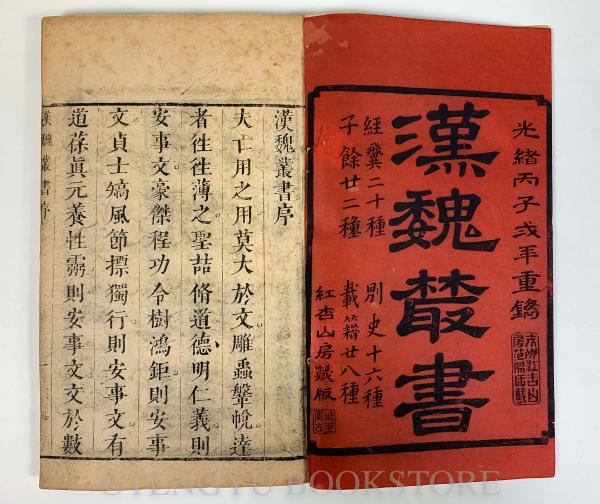 光緒丙子戌年重鐫
漢魏叢書
經翼二十種
別史十六種
子餘廿二種
載籍廿八種
紅杏山房藏版
漢魏叢書序
夫亡用之用莫大於文雕蟲鞶帨達
者往往薄之聖喆脩道德明仁義則
安事文豪傑程功令樹鴻鉅則安事
文貞士竵風節摽獨行則安事文有
道葆眞元養性霛則安事文文於數
漢魏叢書序
一
©TENGYU BOOKSTORE